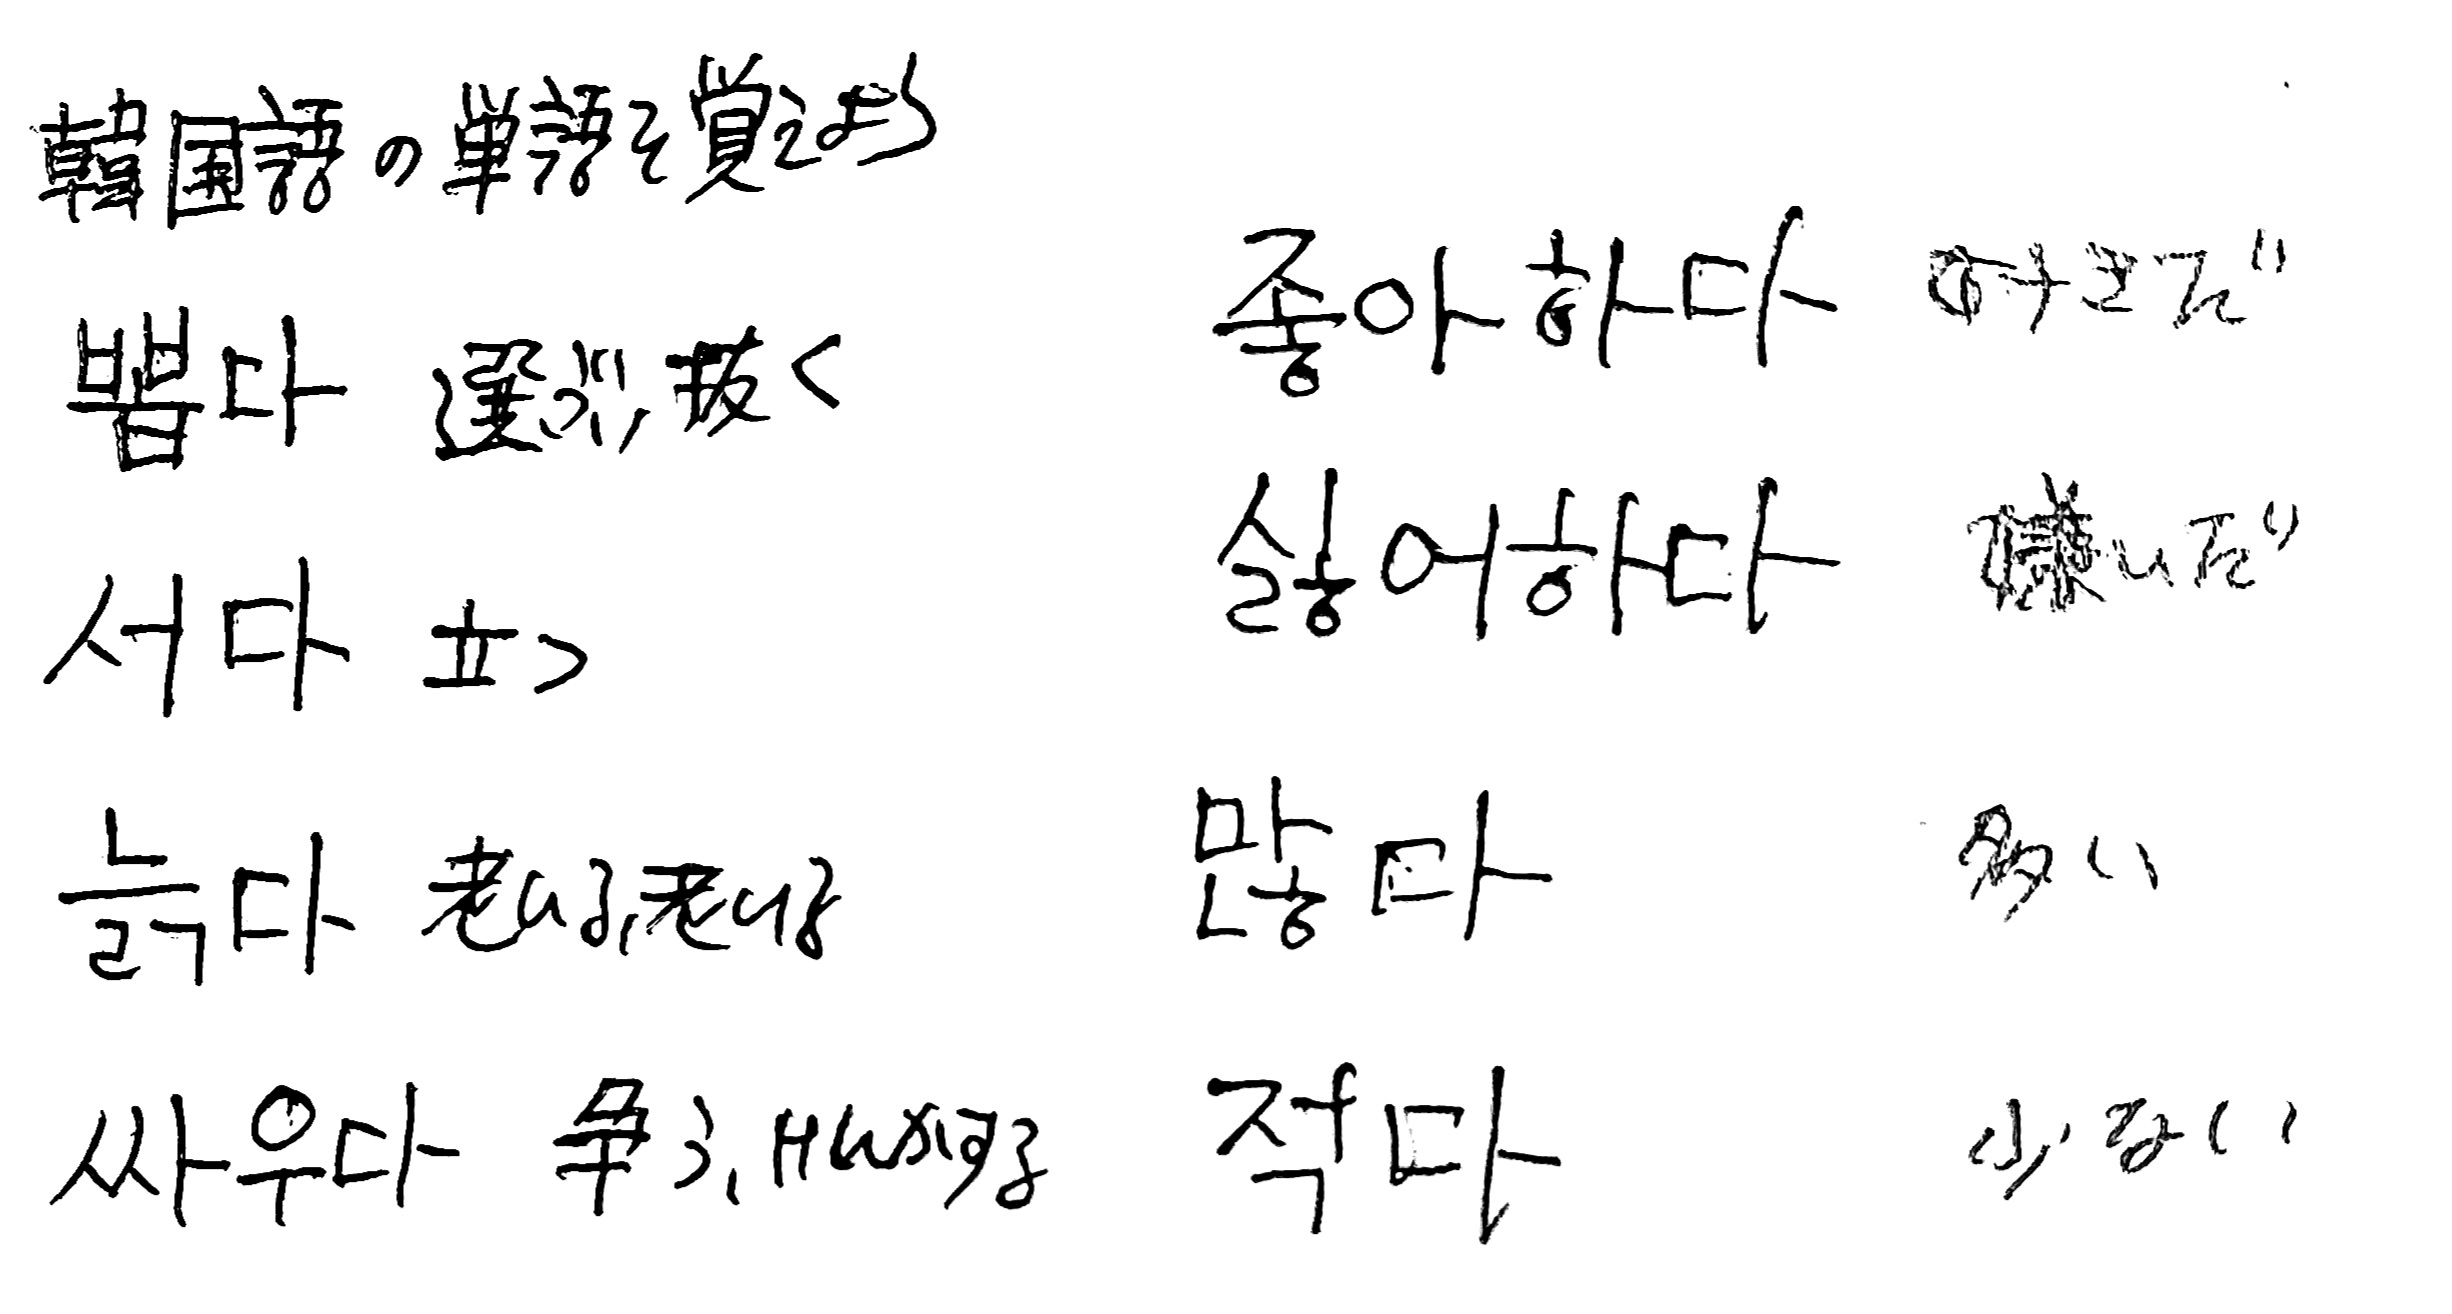 韓国語の単語を覚えよう
뽑다 選ぶ, 抜く
서다 立つ
늙다 老いる, 老ける
싸우다 争う, けんかする
좋아하다 好きだ
싫어하다 嫌いだ
많다 多い
적다 少ない